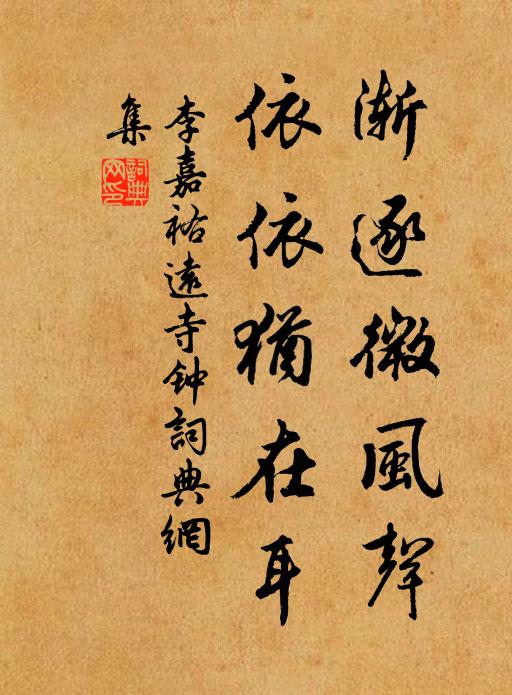 渐逐微風聲
依依猶在耳
李嘉祐遠寺钟詞典網
集
詞典網印